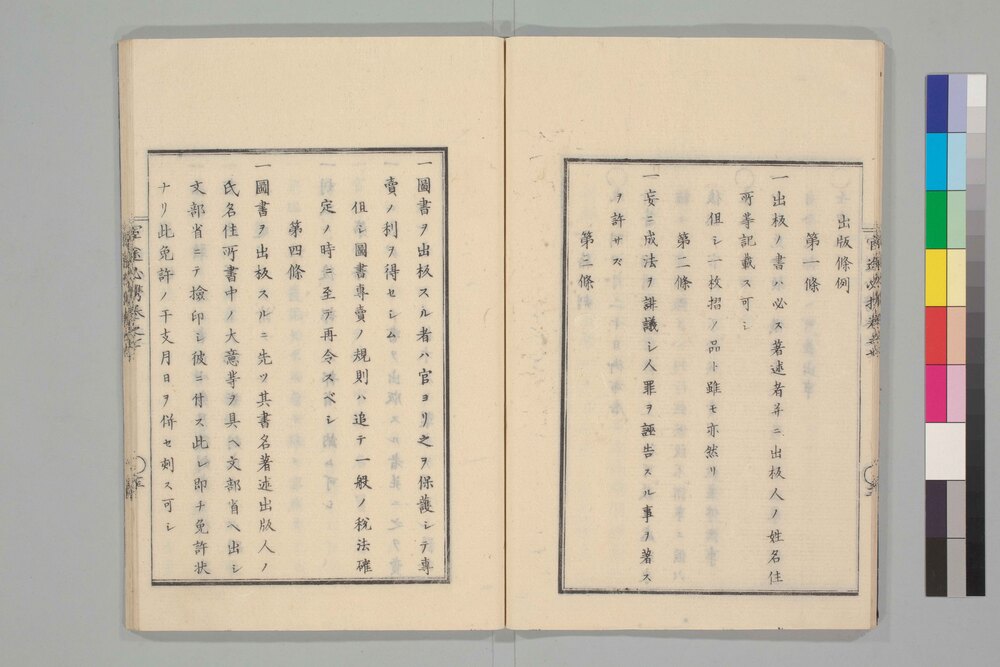 出版條例
第一條
一出板ノ書ハ必ス著述者并ニ出板人ノ姓名住
所等記載ス可シ
但シ一枚摺ノ品ト雖モ亦然リ
第二條
一妄ニ成法ヲ誹議シ人罪ヲ誣告スル事ヲ著ス
ヲ許サス
第三條
一圖書ヲ出板スル者ハ官ヨリ之ヲ保護シテ專
賣ノ利ヲ得セシム
但シ圖書專賣ノ規則ハ追テ一般ノ税法確
定ノ時ニ至テ再令スベシ
第四條
一圖書ヲ出板スルニ先ツ其書名著述出版人ノ
氏名住所書中ノ大意等ヲ具ヘ文部省ヘ出シ
文部省ニテ撿印シ彼ニ付ス此レ即チ免許状
ナリ此免許ノ干支月日ヲ併セ刻ス可シ